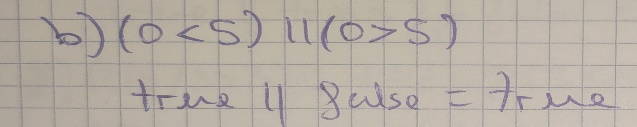 b) (0 < 5) || (0 > 5)
true || false = true